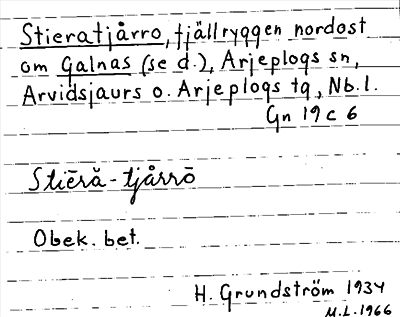 Stieratjårro, fjällryggen nordost
om Galnas (se d.), Arjeplogs sn,
Arvidsjaurs o. Arjeplogs tg, Nb. l.
Gn 19 c 6
Stīēră-tjårrō
Obek. bet.
H. Grundström 1934
M.L. 1966